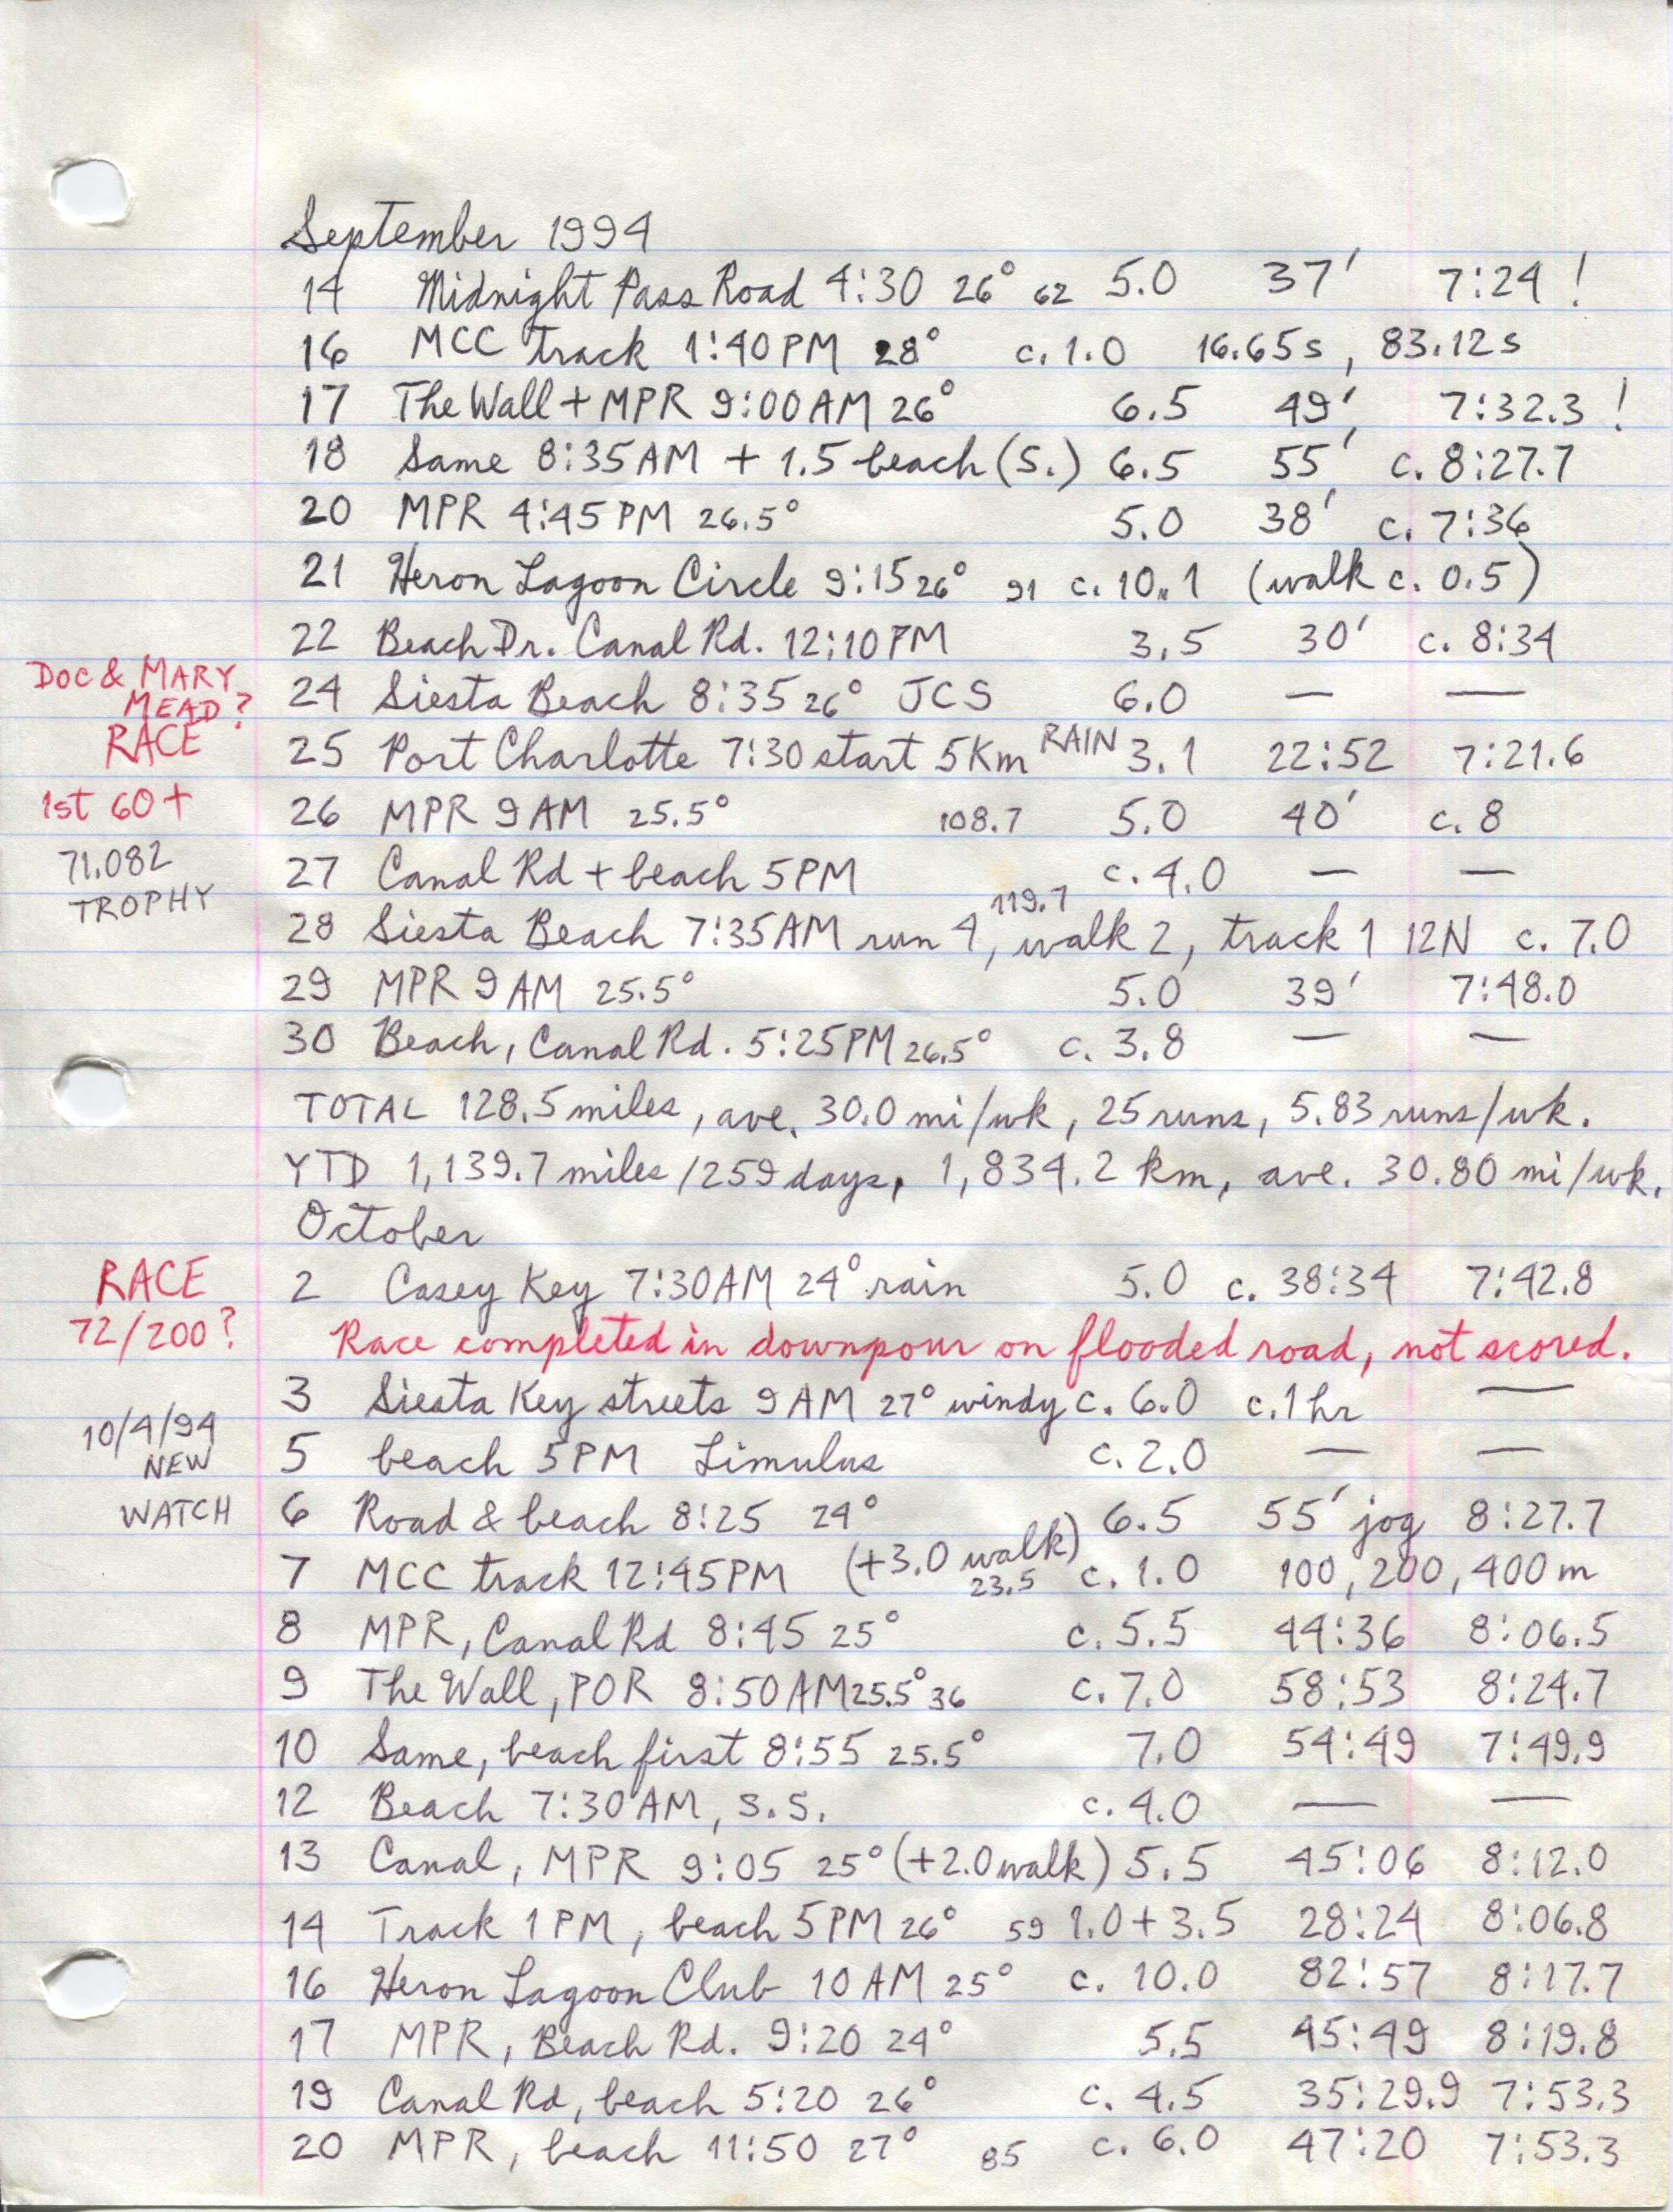 September 1994
14 Midnight Pass Road 4:30 26° 62 5.0 37' 7:24 !
16 MCC track 1:40PM 28° c. 1.0 16.65s, 83.12s
17 The Wall + MPR 9:00AM 26° 6.5 49' 7:32.3 !
18 Same 8:35AM + 1.5 beach (S.) 6.5 55' c. 8:27.7
20 MPR 4:45PM 26.5° 5.0 38' c. 7:36
21 Heron Lagoon Circle 9:15 26° 91 c. 10.1 (walk c. 0.5)
22 Beach Dr. Canal Rd. 12:10PM 3.5 30' c. 8:34
DOC & MARY
MEAD?
24 Siesta Beach 8:35 26° JCS 6.0 — —
RACE
25 Port Charlotte 7:30 start 5Km RAIN 3.1 22:52 7:21.6
1st 60+
26 MPR 9AM 25.5° 108.7 5.0 40' c. 8
71.082
TROPHY
27 Canal Rd + beach 5PM c. 4.0 — —
28 Siesta Beach 7:35AM run 4, walk 2, track 1 12N c. 7.0
119.7
29 MPR 9AM 25.5° 5.0 39' 7:48.0
30 Beach, Canal Rd. 5:25PM 26.5° c. 3.8 — —
TOTAL 128.5 miles, ave. 30.0 mi/wk, 25 runs, 5.83 runs/wk.
YTD 1,139.7 miles/259 days, 1,834.2 km, ave. 30.80 mi/wk.
October
RACE
72/200?
2 Casey Key 7:30AM 24° rain 5.0 c. 38:34 7:42.8
Race completed in downpour on flooded road, not scored.
3 Siesta Key streets 9AM 27° windy c. 6.0 c. 1 hr —
10/4/94
NEW
WATCH
5 beach 5PM Limulus c. 2.0 — —
6 Road & beach 8:25 24° 6.5 55' jog 8:27.7
7 MCC track 12:45PM (+3.0 walk) 23.5 c. 1.0 100, 200, 400m
8 MPR, Canal Rd 8:45 25° c. 5.5 44:36 8:06.5
9 The Wall, POR 8:50AM 25.5° 36 c. 7.0 58:53 8:24.7
10 Same, beach first 8:55 25.5° 7.0 54:49 7:49.9
12 Beach 7:30AM, S.S. c. 4.0 — —
13 Canal, MPR 9:05 25° (+2.0 walk) 5.5 45:06 8:12.0
14 Track 1PM, beach 5PM 26° 59 1.0+3.5 28:24 8:06.8
16 Heron Lagoon Club 10AM 25° c. 10.0 82:57 8:17.7
17 MPR, Beach Rd. 9:20 24° 5.5 45:49 8:19.8
19 Canal Rd, beach 5:20 26° c. 4.5 35:29.9 7:53.3
20 MPR, beach 11:50 27° 85 c. 6.0 47:20 7:53.3